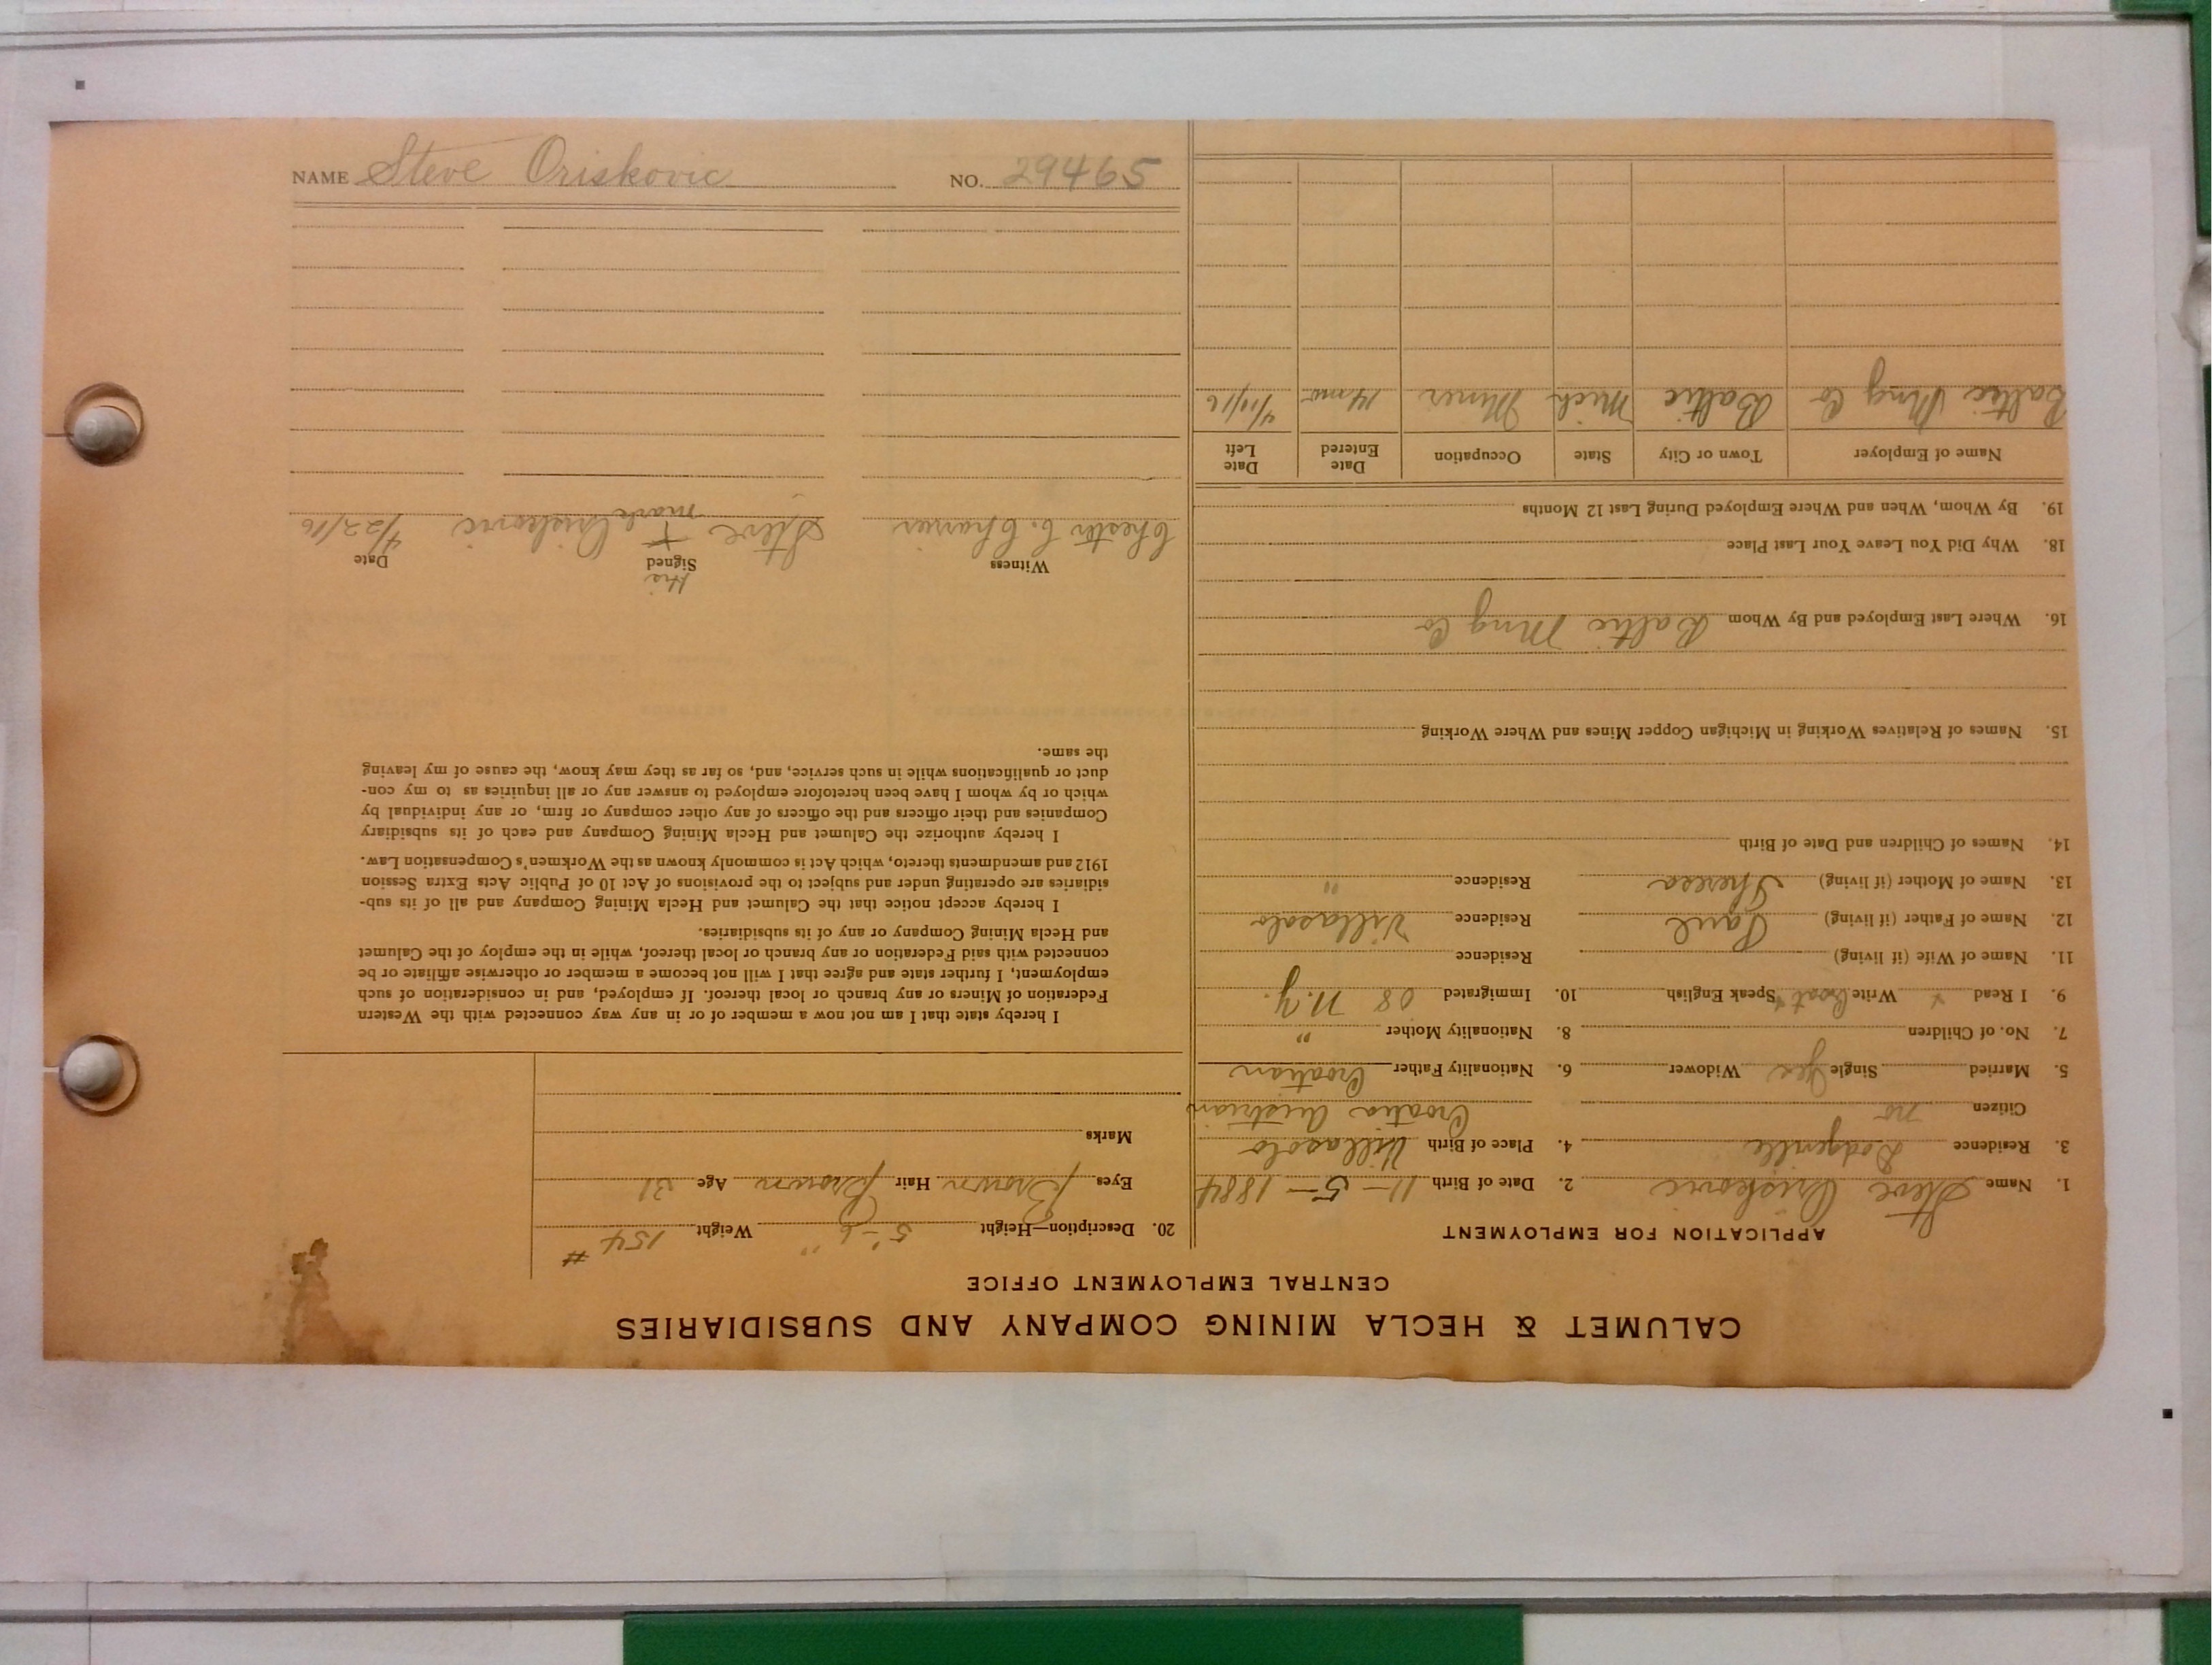 NAME Steve Oriskovic NO. 29465
CALUMET & HECLA MINING COMPANY AND SUBSIDIARIES
CENTRAL EMPLOYMENT OFFICE
APPLICATION FOR EMPLOYMENT
1. Name Steve Oriskovic 2. Date of Birth 11-5-1884
3. Residence Dodgeville 4. Place of Birth Villasolo
Citizen no Croatia Austrian
5. Married Single Yes Widower 6. Nationality Father Croatian
7. No. of Children 8. Nationality Mother "
9. I Read x Write Croat x Speak English 10. Immigrated 08 N.Y.
11. Name of Wife (if living) Residence
12. Name of Father (if living) Paul Residence Villasolo
13. Name of Mother (if living) Theresa Residence "
14. Names of Children and Date of Birth
15. Names of Relatives Working in Michigan Copper Mines and Where Working
16. Where Last Employed and By Whom Baltic Mng Co
18. Why Did You Leave Your Last Place
19. By Whom, When and Where Employed During Last 12 Months
Name of Employer Town or City State Occupation Date Entered Date Left
Baltic Mng Co Baltic Mich Miner 14 mo 4/11/16
20. Description—Height 5'-6" Weight 154 #
Eyes Brown Hair Brown Age 31
Marks
I hereby state that I am not now a member of or in any way connected with the Western
Federation of Miners or any branch or local thereof. If employed, and in consideration of such
employment, I further state and agree that I will not become a member or otherwise affiliate or be
connected with said Federation or any branch or local thereof, while in the employ of the Calumet
and Hecla Mining Company or any of its subsidiaries.
I hereby accept notice that the Calumet and Hecla Mining Company and all of its sub-
sidiaries are operating under and subject to the provisions of Act 10 of Public Acts Extra Session
1912 and amendments thereto, which Act is commonly known as the Workmen's Compensation Law.
I hereby authorize the Calumet and Hecla Mining Company and each of its subsidiary
Companies and their officers and the officers of any other company or firm, or any individual by
which or by whom I have been heretofore employed to answer any or all inquiries as to my con-
duct or qualifications while in such service, and, so far as they may know, the cause of my leaving
the same.
His
Witness Signed Date
Chester C. Steve x Oriskovic 4/22/16
mark